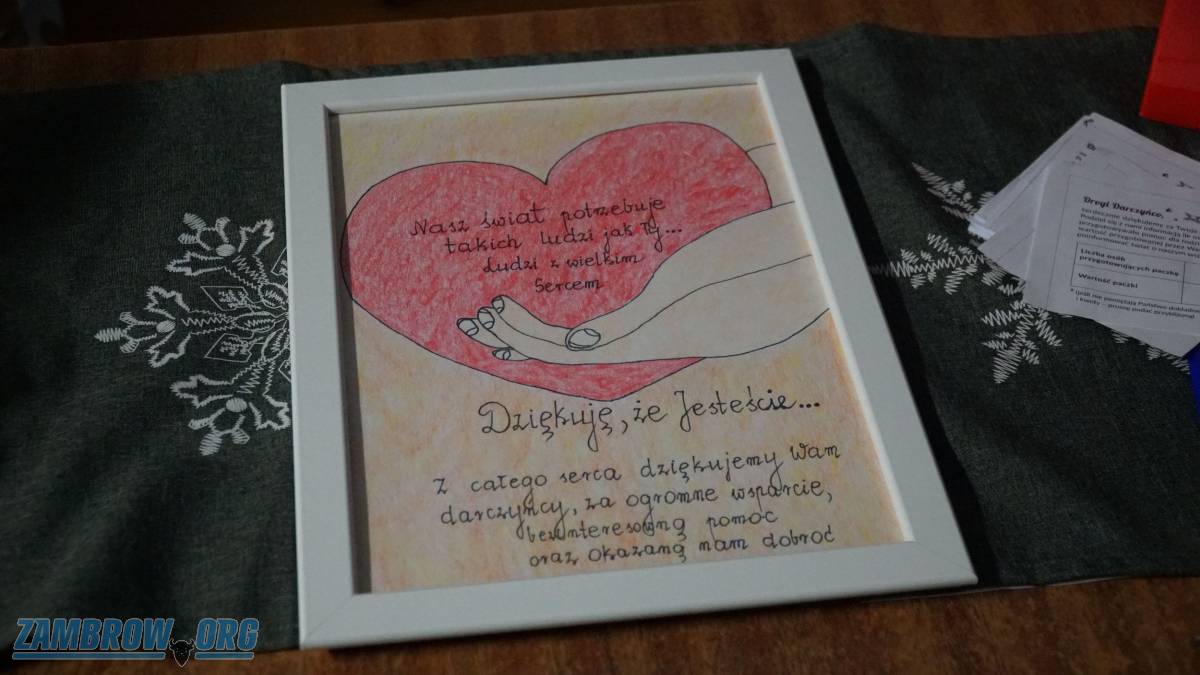 Nasz świat potrzebuje
takich ludzi jak Ty...
Ludzi z wielkim
Sercem
Dziękuję, że Jesteście...
Z całego serca dziękujemy Wam
darczyńcy, za ogromne wsparcie,
bezinteresowną pomoc
oraz okazaną nam dobroć
Drogi Darczyńco,
serdecznie dziękujemy za
Podziel się z nami
Liczba osób
przygotowujących paczkę
Wartość paczki
ZAMBROW.ORG